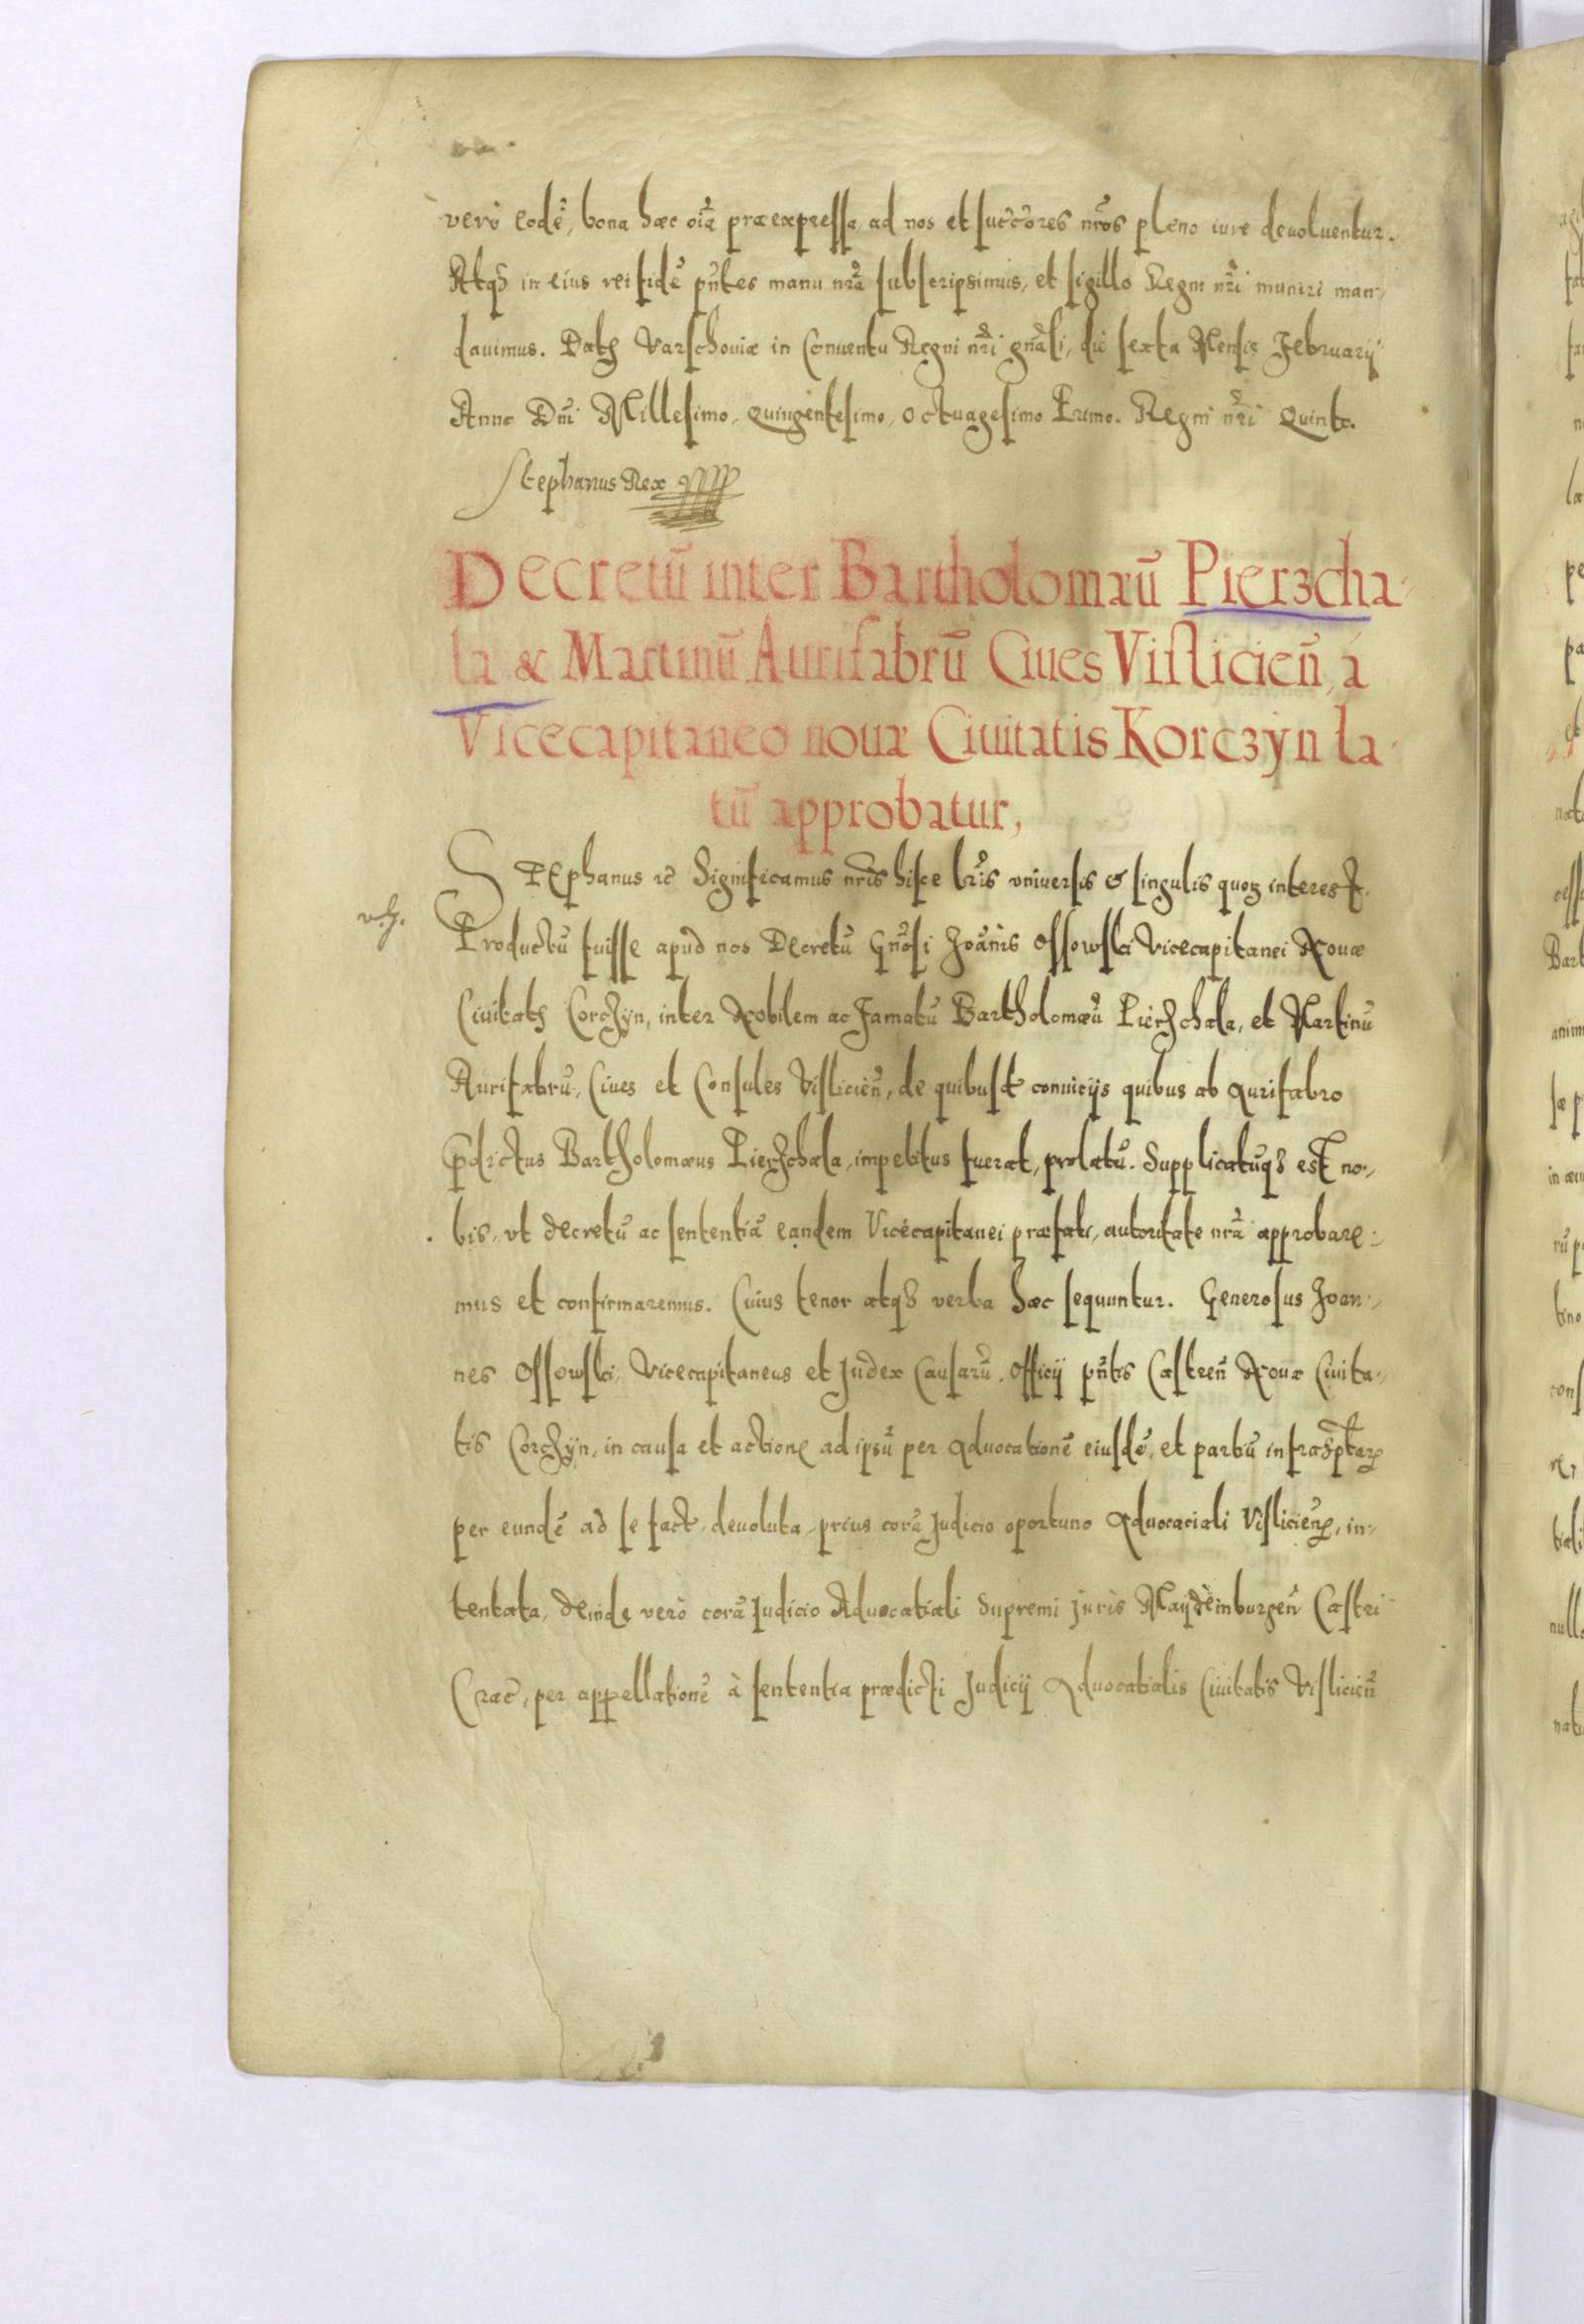 verò eodē, bona hæc oīa præexpressa, ad nos et succōres nr̄os pleno iure deuoluentur.
Atqȝ in eius rei fidē pn̄tes manu nr̄a subscripsimus, et sigillo Regni nr̄i muniri man-
dauimus. Datȝ Varschouiæ in Conuentu Regni nr̄i gn̄ali, die sexta Mensis February
Anno Dn̄i Millesimo, Quingentesimo, Octuagesimo Primo. Regni nr̄i Quinto.
Stephanus Rex
Decretū inter Bartholomæū Pierzcha-
la & Martinū Aurifabrū Ciues Vislicien̄, á
Vicecapitaneo nouæ Ciuitatis Korczÿn la-
tū approbatur,
STEphanus ec̄ Significamus nr̄is hisce lr̄is vniuersis & singulis quoꝝ interest.
Productū fuisse apud nos Decretū Gn̄osi Joānis Ossowski Vicecapitanei Nouæ
Ciuitatȝ Corchÿn, inter Nobilem ac Famatū Bartholomæū Pierzchala, et Martinū
Aurifabrū, Ciues et Consules Vislicien̄, de quibusd conuicijs quibus ab Aurifabro
p̄dictus Bartholomæus Pierzchala, impetitus fuerat, prolatū. Supplicatūqȝ est no-
bis, vt decretū ac sententiā eandem Vicecapitanei præfati, autoritate nr̄a approbare-
mus et confirmaremus. Cuius tenor atqȝ verba hæc sequuntur. Generosus Joan-
nes Ossowski, Vicecapitaneus et Judex Causarū, Officij pn̄tis Castren̄ Nouæ Ciuita-
tis Corchÿn, in causa et actione ad ipsū per Aduocationē eiusdē, et partiū infrascptarꝫ
per eundē ad se fact, deuoluta, prius corā Judicio oportuno Aduocaciali Vislicien̄, in-
tentata, deinde verò corā Judicio Aduocatiali Supremi Juris Maÿdemburgen̄ Castri
Crac̄, per appellationē à sententia prædicti Judicij Aduocatialis Ciuitatis Vislicien̄